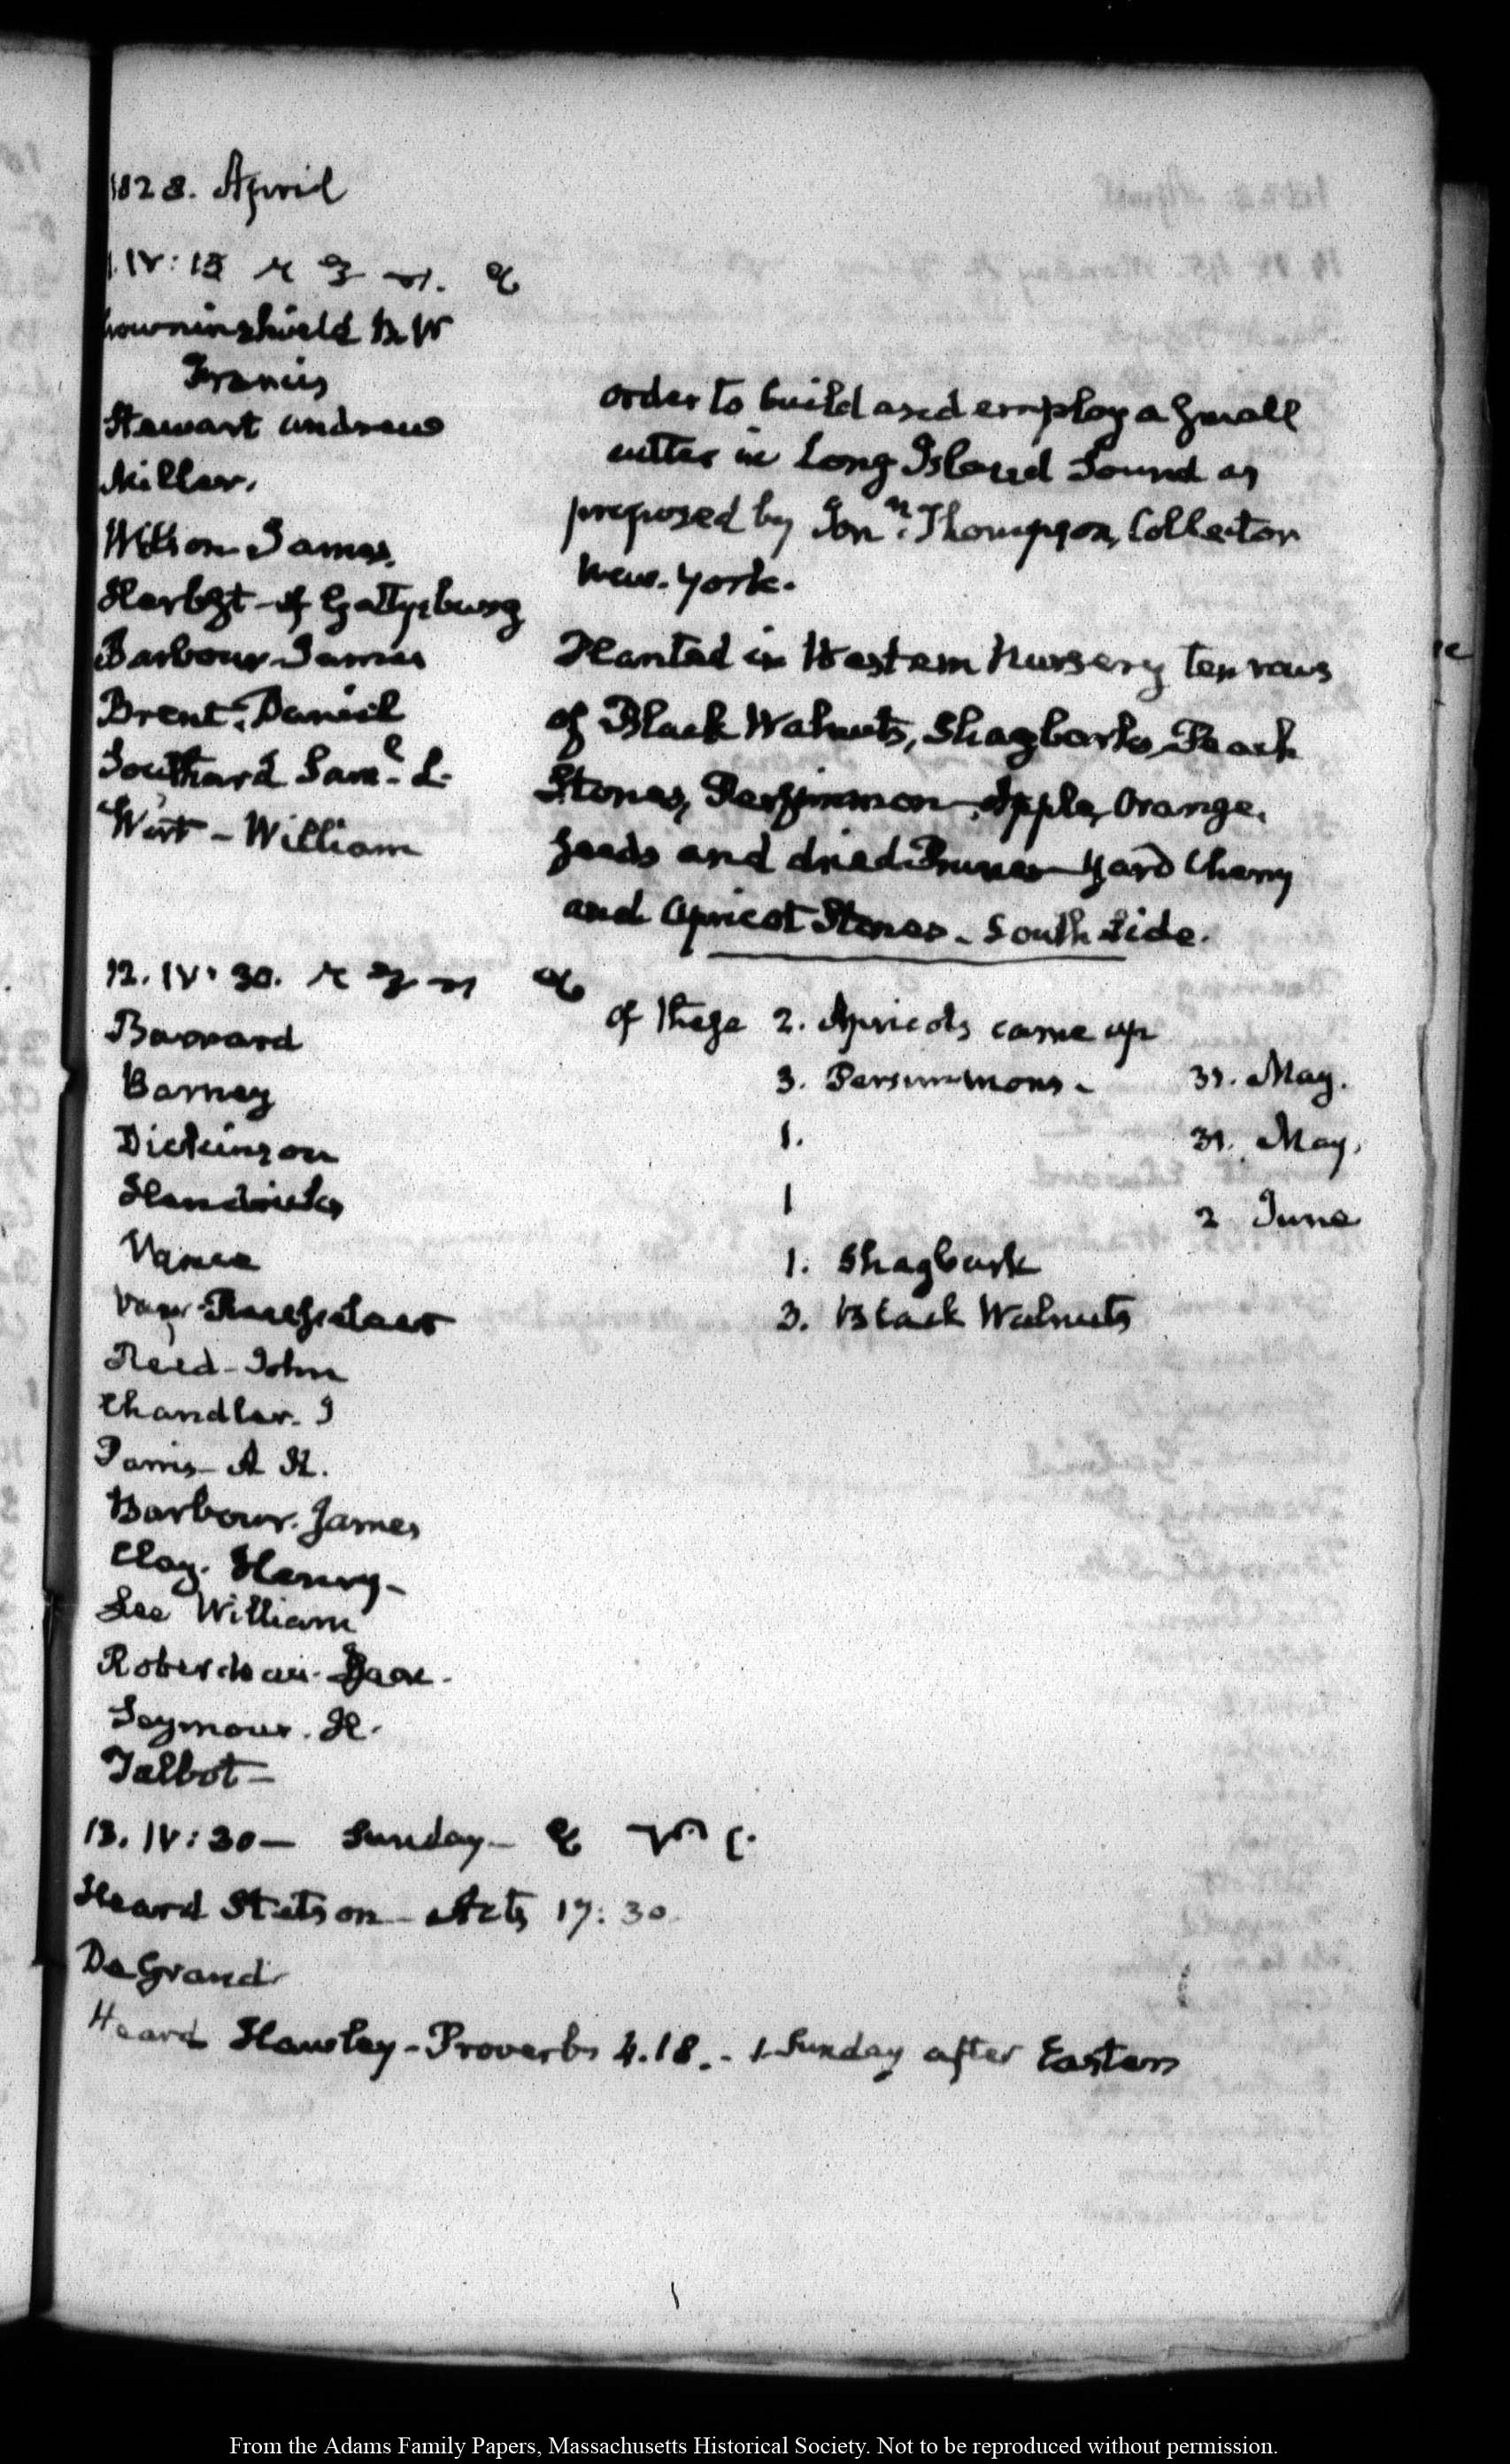 1828. April
IV: 15
Crowninshield B. W
Francis
Stewart Andrew
Miller.
Wilson James.
Herbst of Gettysburg
Barbour James
Brent. Daniel
Southard Saml. L.
Wirt - William
order to build and employ a small
cutter in Long Island Sound as
proposed by Jonn. Thompson, Collector
New-York.
Planted in Western Nursery ten rows
of Black Walnuts, Shagbarks, Peach
Stones, Persimmon, Apple, Orange,
seeds and dried Prunes - Yard Cherry
and Apricot Stones - South side.
12. IV. 30.
Barnard
Barney
Dickinson
Hendricks
Vance
Van Rensselaer
Reed - John
Chandler. J
Parris - A K.
Barbour. James
Clay. Henry -
Lee William
Roberdeau Isaac.
Seymour. H.
Talbot -
of these 2. Apricots came up
3. Persimmons - 31. May.
1. 31. May.
1 2 June
1. Shagbark
3. Black Walnuts
13. IV: 30 - Sunday -
Heard Stetson - Acts 17: 30
De Grand
Heard Hawley - Proverbs 4.18. - 1 Sunday after Eastern
From the Adams Family Papers, Massachusetts Historical Society. Not to be reproduced without permission.